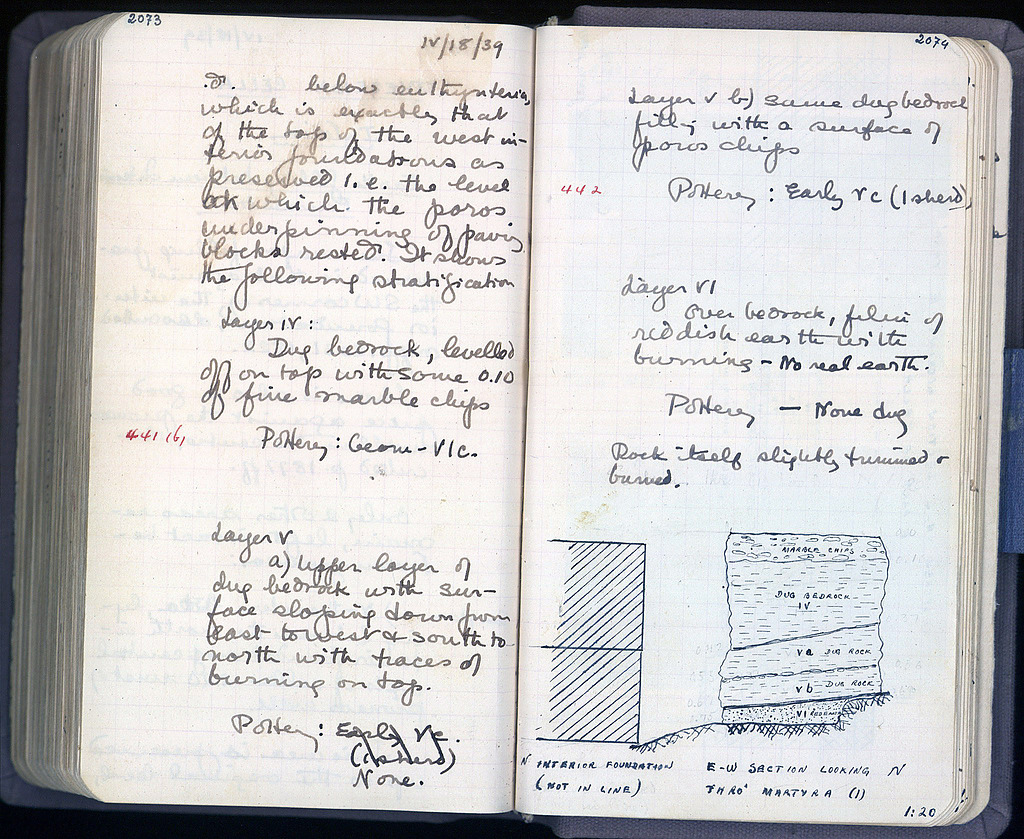 2073
IV/18/39
below euthynteria,
which is exactly that
of the top of the west in-
terior foundations as
preserved i.e. the level
at which the poros
underpinning of paving
blocks rested. It shows
the following stratification
Layer IV:
Dug bedrock, levelled
off on top with some 0.10
of fine marble chips
441 (6)
Pottery: Geom - VI c.
Layer V
a) upper layer of
dug bedrock with sur-
face sloping down from
East to west & south to
north with traces of
burning on top.
Pottery: Early Vc.
(1 sherd)
None.
2074
Layer V b) same dug bedrock
filling with a surface of
poros chips
442
Pottery: Early Vc (1 sherd)
Layer VI
Over bedrock, filling of
reddish earth with
burning - No real earth.
Pottery — None dug
Rock itself slightly trimmed &
burned.
MARBLE CHIPS
DUG BEDROCK
IV
Va DUG ROCK
Vb DUG ROCK
VI
N INTERIOR FOUNDATION
(NOT IN LINE)
E-W SECTION LOOKING N
THRO' MARTYRA (1)
1:20